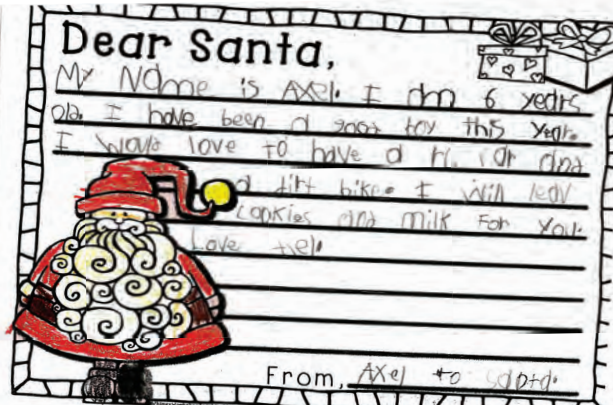 Dear Santa,
My Name is Axel. I am 6 years
old. I have been a good boy this year.
I would love to have a car and
a dirt bike. I will leav
cookies and milk For you.
Love
From, Axel to santa.